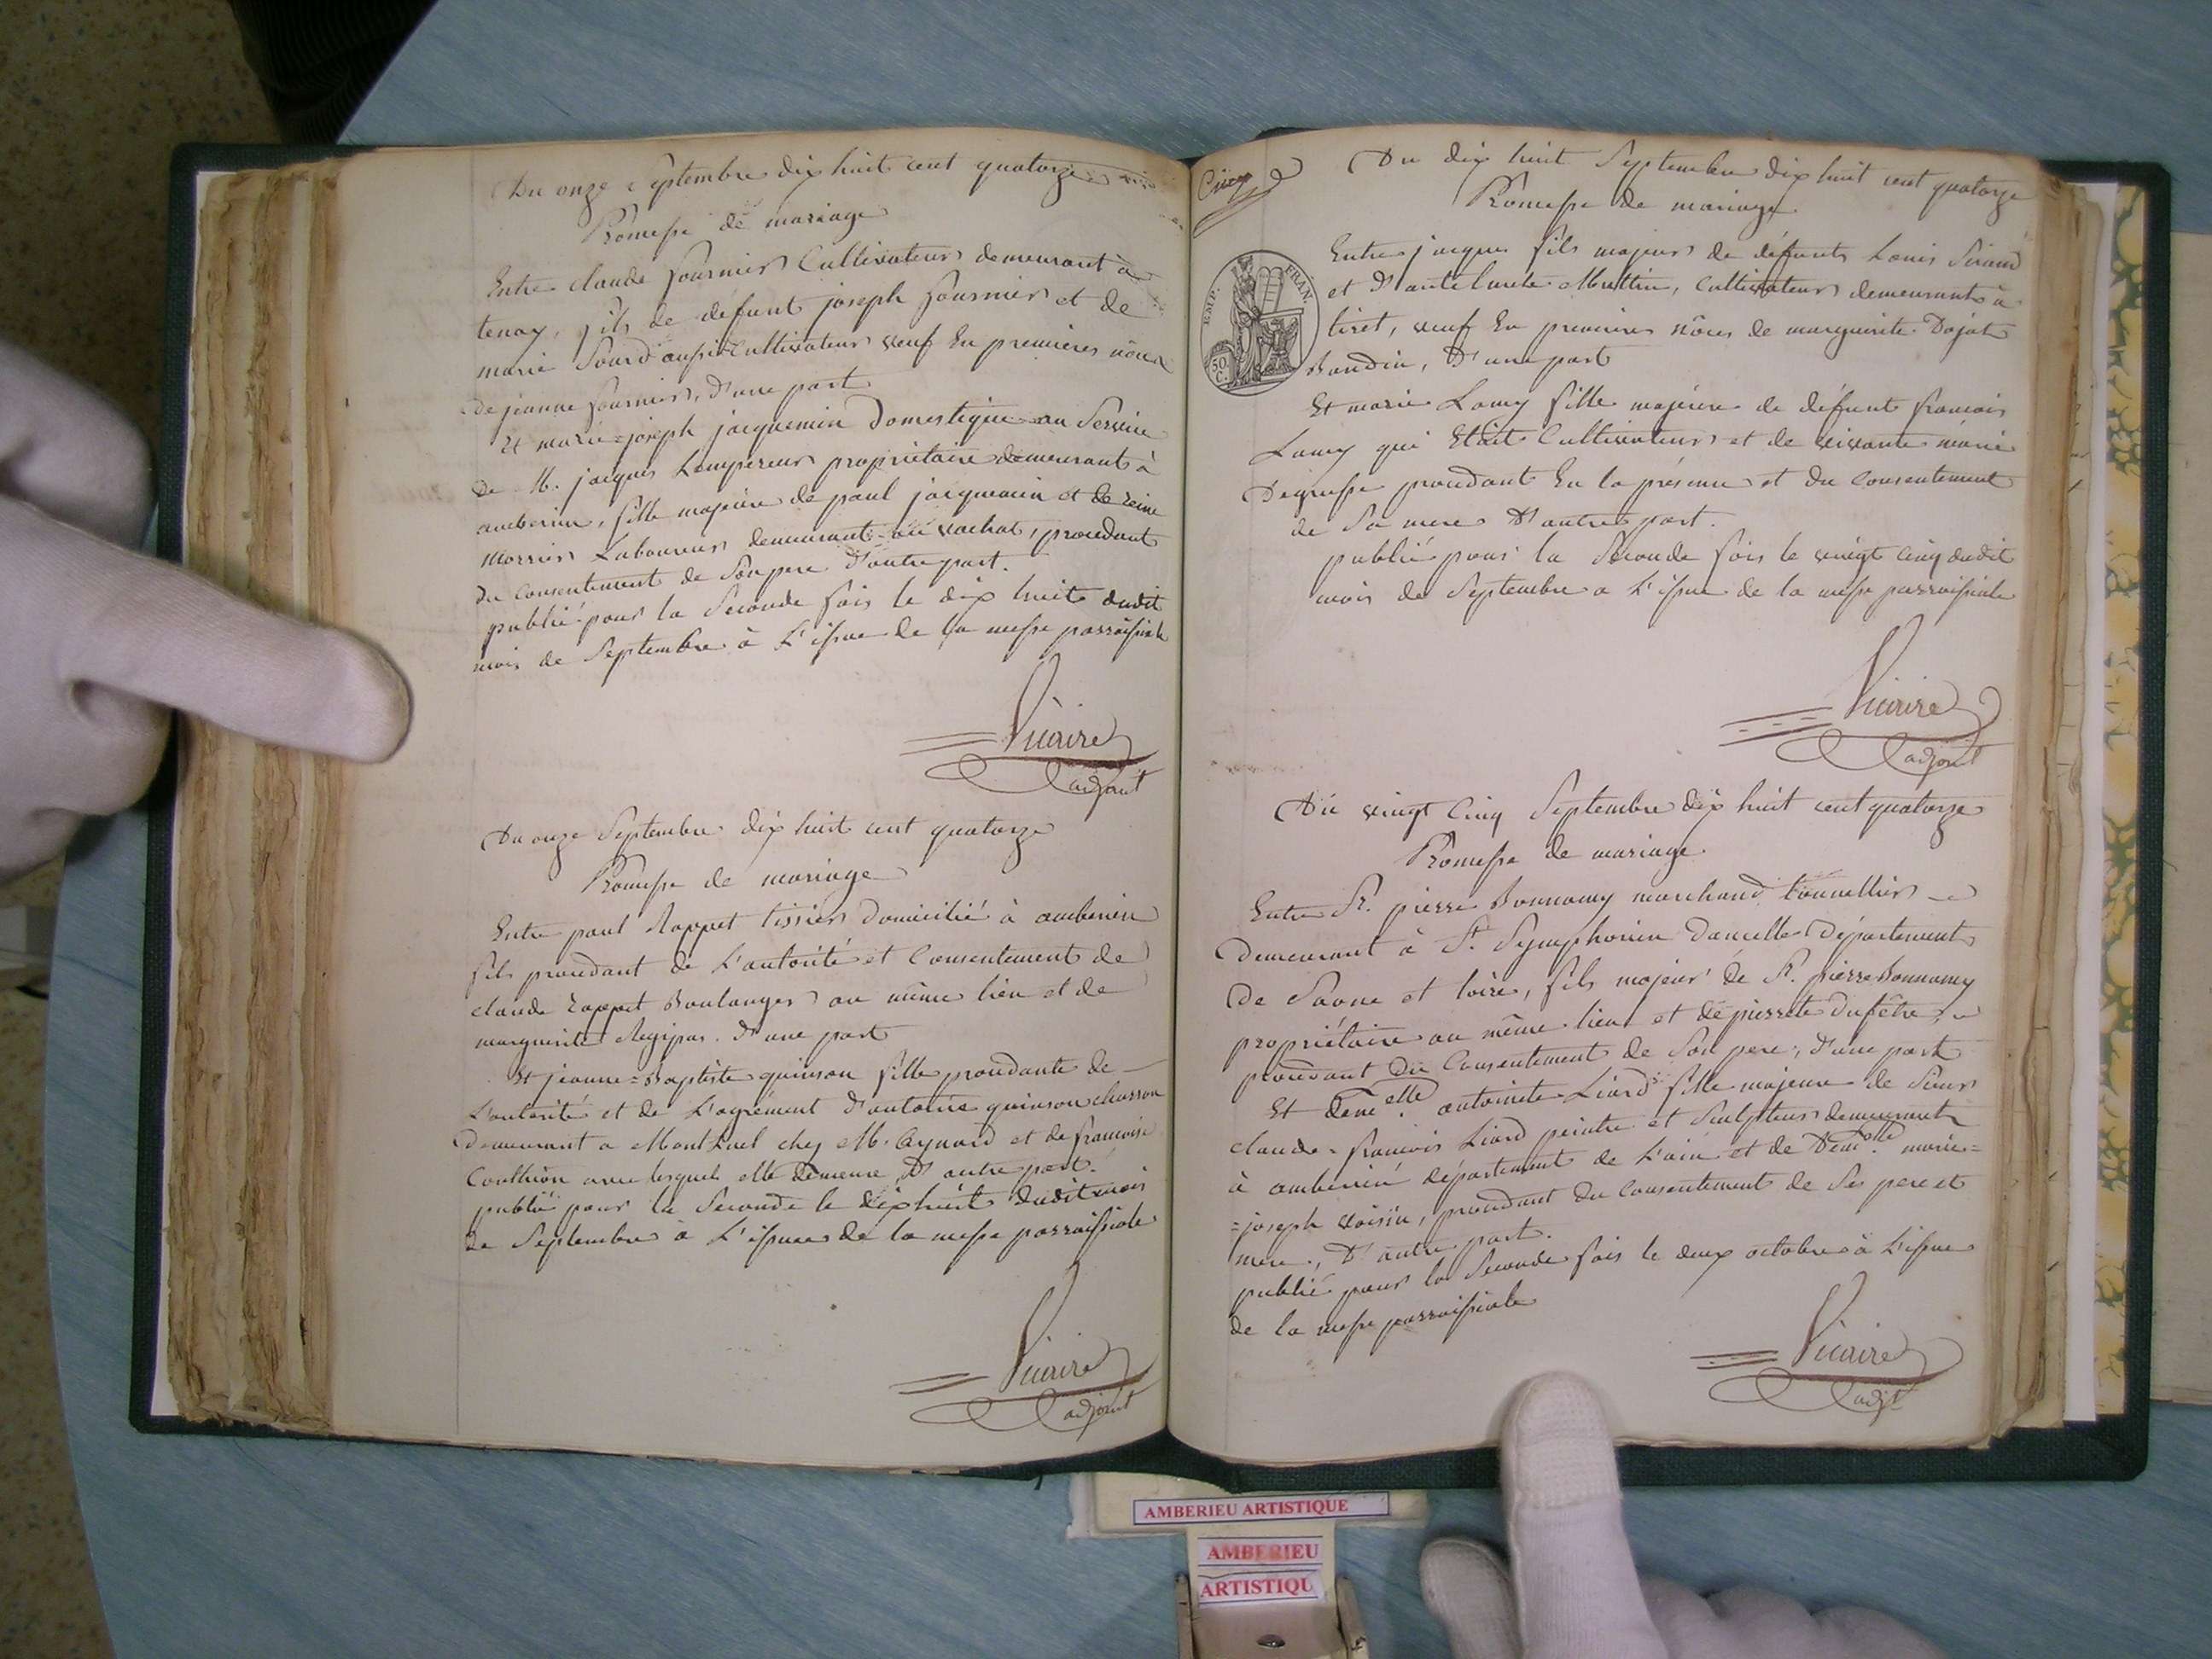 Du onze Septembre dix huit cent quatorze
Promesse de mariage
Entre claude fournier Cultivateur demeurant à
tenay, fils de défunt joseph fournier et de
marie Sourd aussi Cultivateur veuf En premieres nôces
de jeanne fournier, d'une part
Et marie=joseph jacquemin Domestique au Service
de M. jacques Lempereur propriétaire demeurant à
amberieu, fille majeure de paul jacquemin et de reine
Morrier Laboureur demeurant au vachat, procedant
du Consentement de Son pere d'autre part.
publié pour la Seconde fois le dix huit dudit
mois de Septembre à L'issue de la messe parroissiale
Vicaire
adjoint
Du onze Septembre dix huit cent quatorze
Promesse de mariage
Entre paul Rappet tissier domicilié à amberieu
fils procedant de L'autorité et Consentement de
claude rappet Boulanger au même lieu et de
marguerite . d'une part
Et jeanne=Baptiste quinson fille procedante de
L'autorité et de L'agrément d'antoine quinson charron
demeurant a MontLuel chez M. Aynard et de francoise
Couthion avec lesquels elle demeure D'autre part.
publié pour la Seconde le dix huit dudit mois
de Septembre à L'issue de la messe parroissiale
Vicaire
adjoint
EMP. FRAN.
50 C.
Du dix huit Septembre dix huit cent quatorze
Promesse de mariage
Entre jacques fils majeur de défunts Louis Siraud
et D'antelmete Muttin, Cultivateur demeurant à
tiret, veuf En premieres nôces de marguerite Dojat
Bondin, D'une part
Et marie Lamy fille majeure de défunt francois
Lamy qui Etait Cultivateur et de vivante marie
Degresse procedant En la présence et du Consentement
de Sa mere D'autre part.
publié pour la Seconde fois le vingt cinq dudit
mois de Septembre a L'issue de la messe parroissiale
Vicaire
adjoint
Du vingt Cinq Septembre dix huit cent quatorze
Promesse de mariage.
Entre Sr. pierre Bonnamy marchand tonnellier
demeurant à St. Symphorien Dancelle Département
de Saone et loire, fils majeur de Sr. pierre Bonnamy
propriétaire au même lieu et de pierrete Dufêtre,
procedant du Consentement de Son pere, d'une part
Et demelle. antoinete Liard fille majeure de Sieur
claude=francois Liard peintre et Sculpteur demeurant
à amberieu département de L'ain et de Demelle. marie=
=joseph voisin, procedant du Consentement de Ses pere et
mere, D'autre part.
publié pour la Seconde fois le deux octobre à L'issue
de la messe parroissiale
Vicaire
adjt
AMBERIEU ARTISTIQUE
AMBERIEU
ARTISTIQU